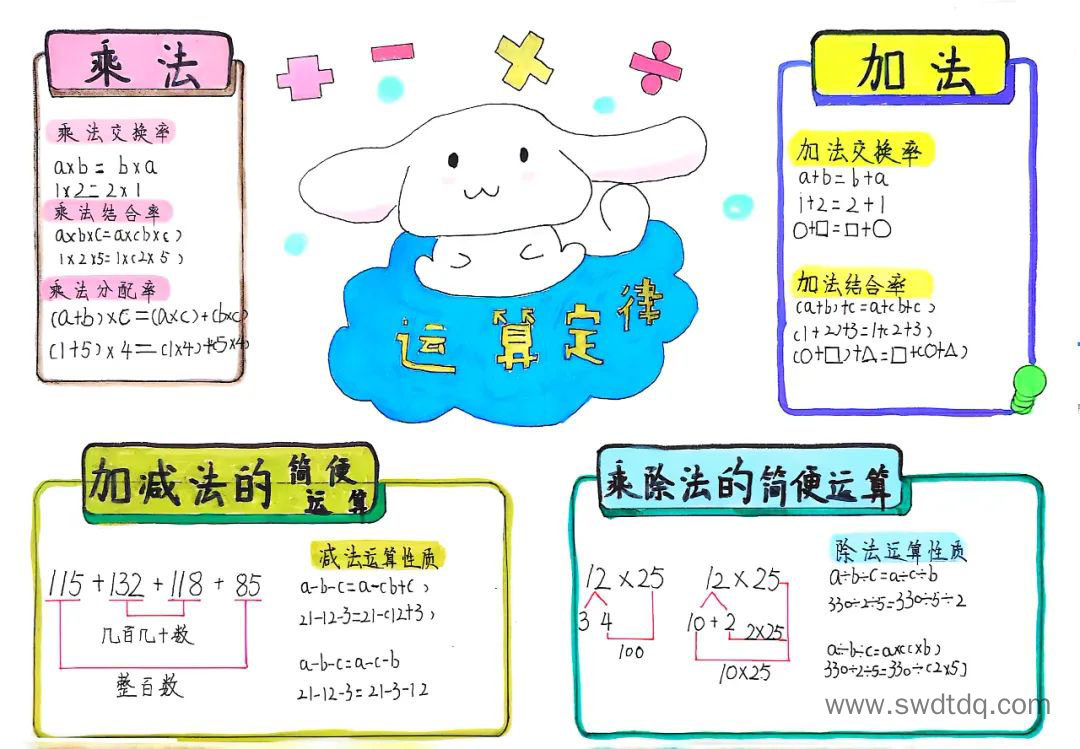 乘法
乘法交换率
a×b=b×a
1×2=2×1
乘法结合率
a×b×c=a×cb×c)
1×2×5=1×c2×5)
乘法分配率
(a+b)×c=(a×c)+(b×c)
(1+5)×4=(1×4)+(5×4)
运算定律
加法
加法交换率
a+b=b+a
1+2=2+1
○+□=□+○
加法结合率
(a+b)+c=a+cb+c)
c1+2)+3=1+c2+3)
(○+□)+△=□+(○+△)
加减法的简便运算
115+132+118+85
几百几十数
整百数
减法运算性质
a-b-c=a-cb+c)
21-12-3=21-c12+3)
a-b-c=a-c-b
21-12-3=21-3-12
乘除法的简便运算
12×25
3 4
100
12×25
10+2
2×25
10×25
除法运算性质
a÷b÷c=a÷c÷b
330÷2÷5=330÷5÷2
a÷b÷c=a×c×b)
330÷2÷5=330÷c2×5]
www.swdtdq.com